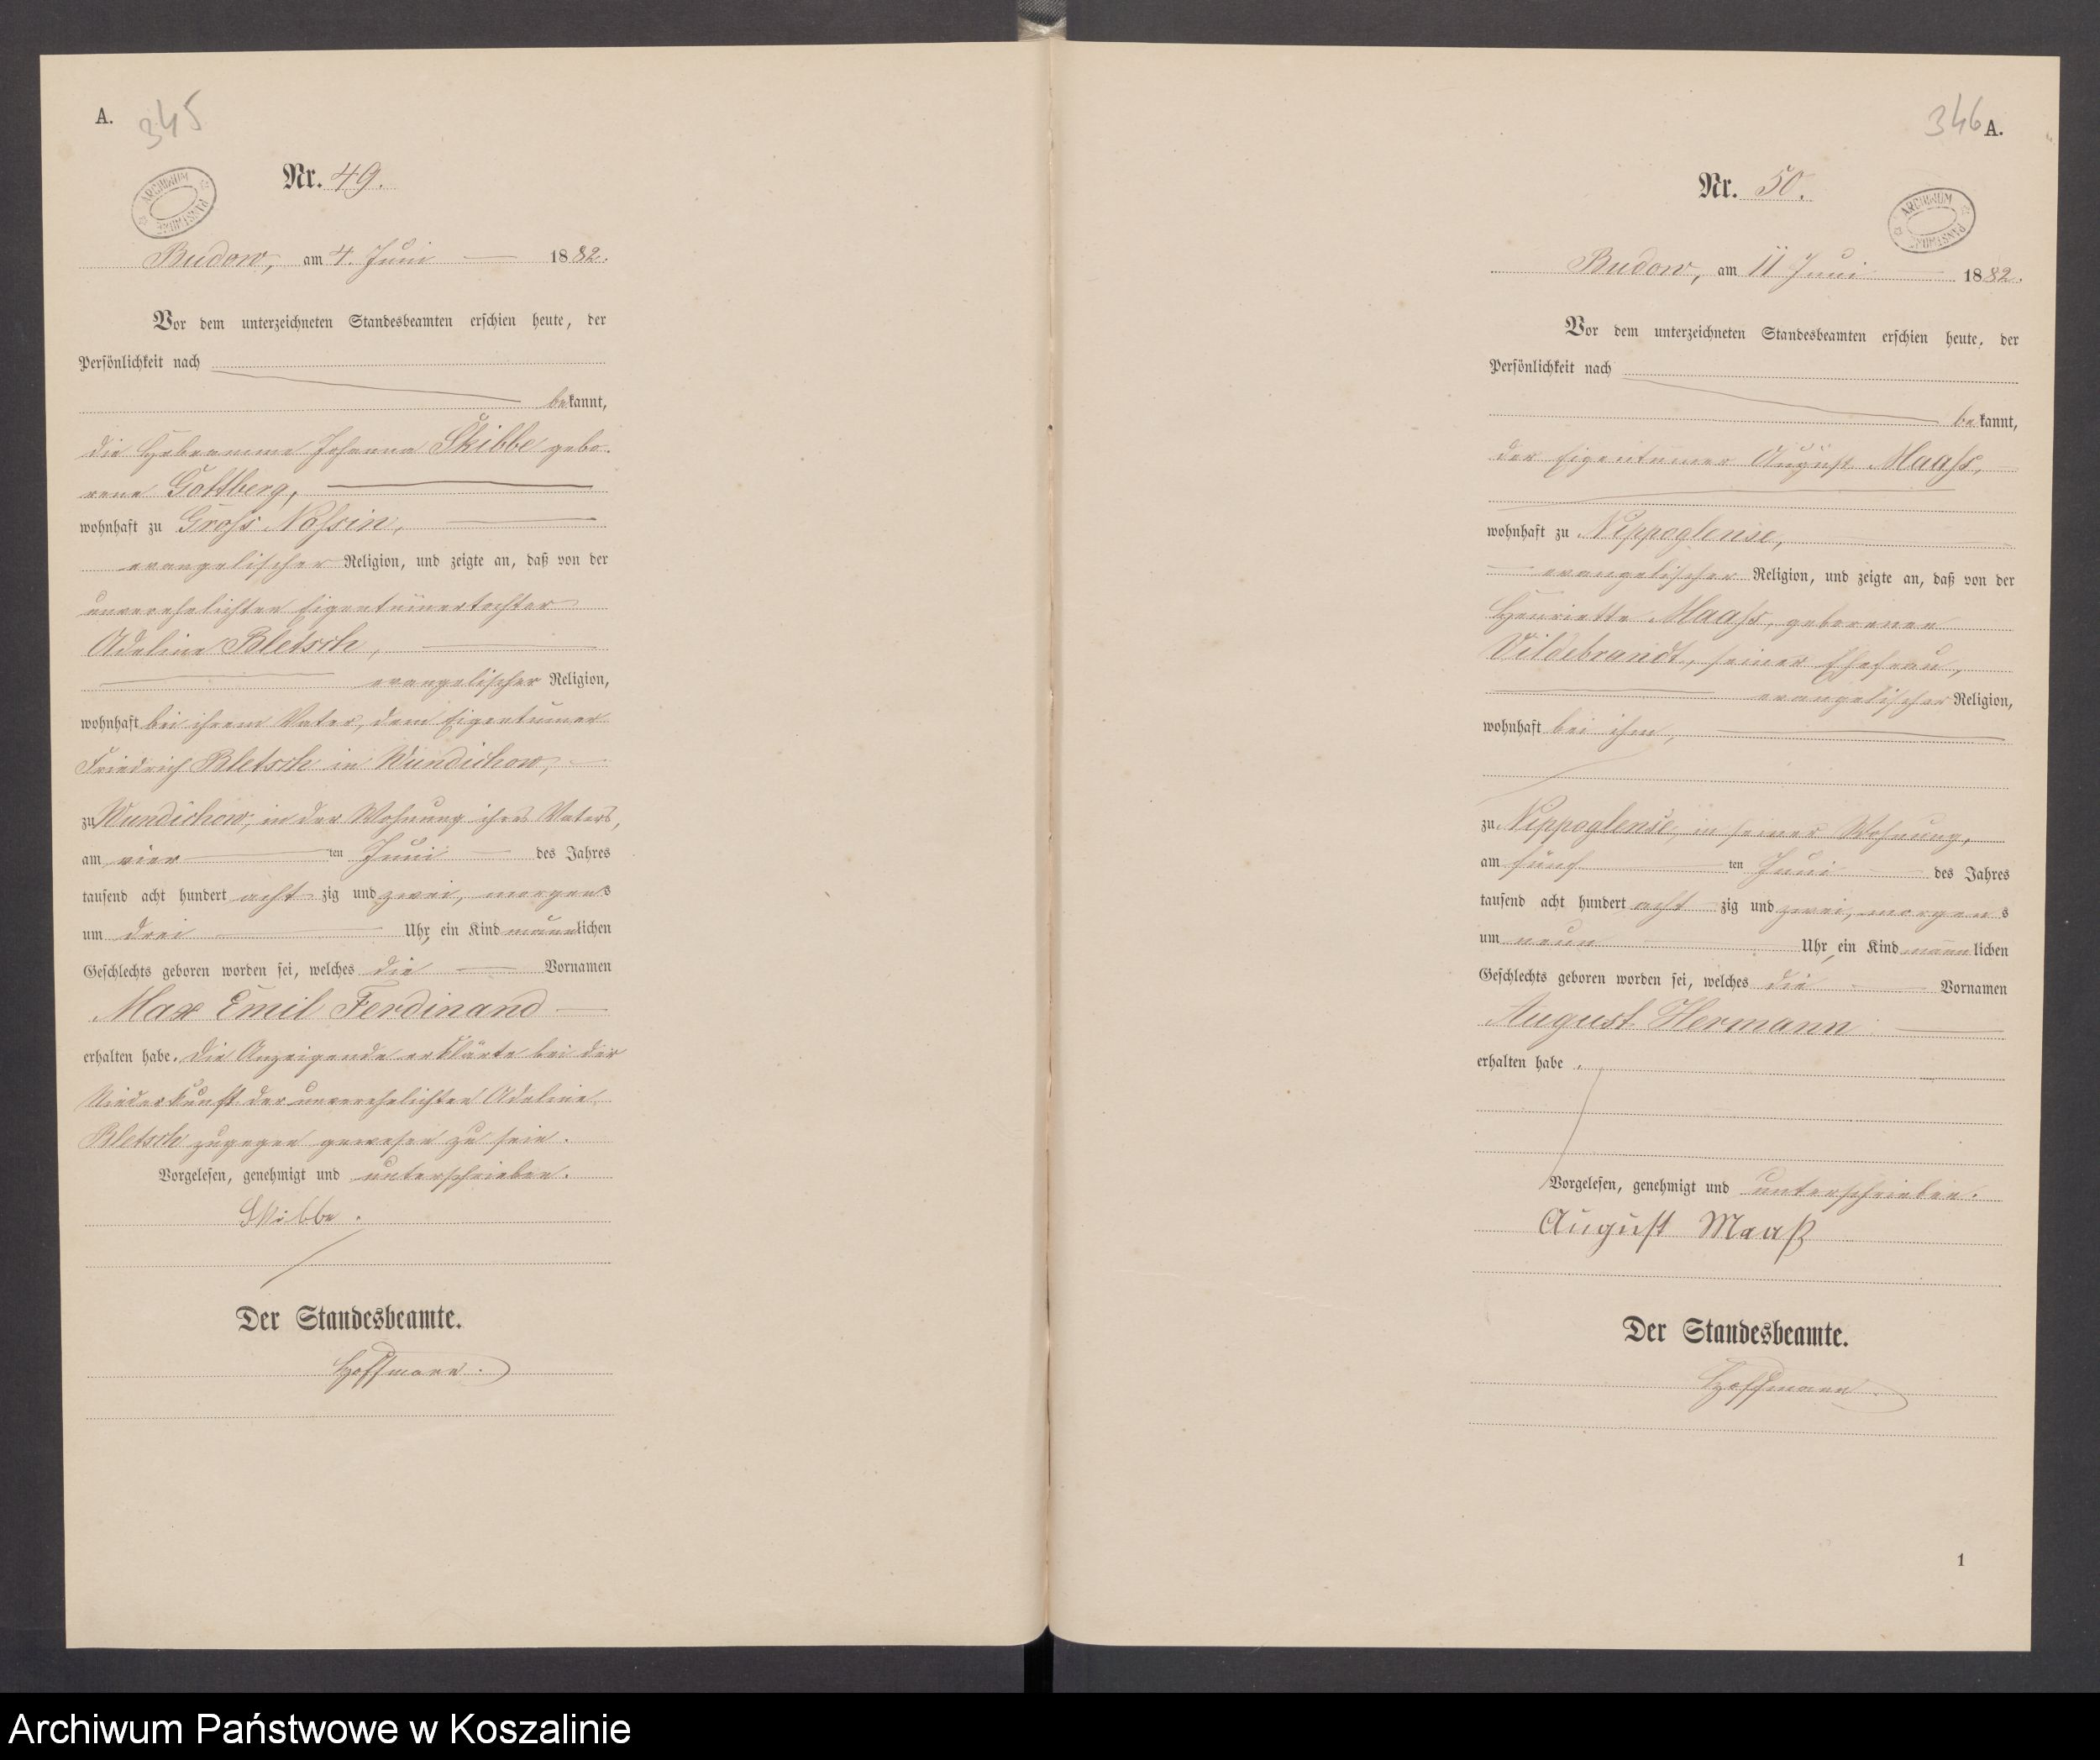 A. 345
ARCHIWUM PAŃSTWOWE
Nr. 49.
Budow, am 4. Juni 1882.
Vor dem unterzeichneten Standesbeamten erschien heute, der
Persönlichkeit nach
bekannt,
die Hebeamme Johanna Skibbe gebo-
rene Gottberg,
wohnhaft zu Groß Nossin,
evangelischer Religion, und zeigte an, daß von der
unverehelichten Eigentümertochter
Adeline Bletsch,
evangelischer Religion,
wohnhaft bei ihrem Vater, dem Eigentümer
Friedrich Bletsch in Wundichow,
zu Wundichow, in der Wohnung ihres Vaters,
am vier ten Juni des Jahres
tausend acht hundert acht zig und zwei, morgens
um drei Uhr, ein Kind männlichen
Geschlechts geboren worden sei, welches die Vornamen
Max Emil Ferdinand
erhalten habe. Die Anzeigende erklärte bei der
Niederkunft der unverehelichten Adeline
Bletsch zugegen gewesen zu sein.
Vorgelesen, genehmigt und unterschrieben.
Skibbe.
Der Standesbeamte.
Hoffmann.
346 A.
Nr. 50.
ARCHIWUM PAŃSTWOWE
Budow, am 11 Juni 1882.
Vor dem unterzeichneten Standesbeamten erschien heute, der
Persönlichkeit nach
bekannt,
der Eigentümer August Maaß,
wohnhaft zu Nippoglense,
evangelischer Religion, und zeigte an, daß von der
Henriette Maaß, geborenen
Vildebrandt, seiner Ehefrau,
evangelischer Religion,
wohnhaft bei ihm,
zu Nippoglense, in seiner Wohnung,
am fünf ten Juni des Jahres
tausend acht hundert acht zig und zwei, morgens
um neun Uhr, ein Kind männlichen
Geschlechts geboren worden sei, welches die Vornamen
August Hermann
erhalten habe.
Vorgelesen, genehmigt und unterschrieben.
August Maaß
Der Standesbeamte.
Hoffmann.
1
Archiwum Państwowe w Koszalinie